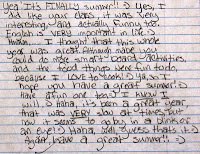 Yea! It's FINALLY summer!! :) Yes, I
did like your class, it was very
interesting and actually funny too.
English is VERY important in life :)
Haha.. I thought that this whole
year was great. Although maybe you
could do more smart board activities,
and the food things were fun too,
because I LOVE to cook! :) Ya, so I
hope you have a great summer! :)
Have a fun one too! I know I
will :) Haha, it's been a great year,
that was VERY slow at times, but
now it seems to go by in the blink of
an eye! :) Haha, well, guess that's it :)
Again, have a great summer!! :-)